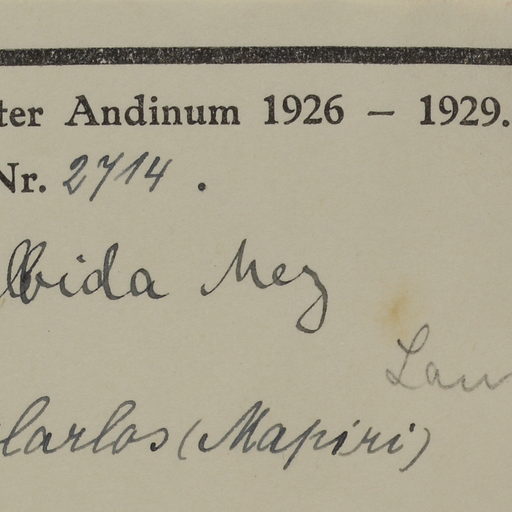 ter Andinum 1926 – 1929.
Nr. 2714.
lbida Mez
Lau
Carlos (Mapiri)